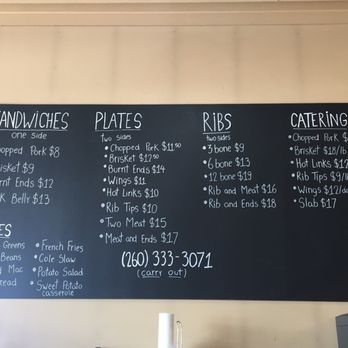 ANDWICHES
one side
hopped Pork $8
isket $9
rnt Ends $12
k Belly $13
ES
Greens
Beans
d Mac
read
• French Fries
• Cole Slaw
• Potato Salad
• Sweet Potato
casserole
PLATES
two sides
• Chopped Pork $11.50
• Brisket $12.50
• Burnt Ends $14
• Wings $11
• Hot Links $10
• Rib Tips $10
• Two Meat $15
• Meat and Ends $17
(260) 333-3071
(carry out)
RIBS
two sides
• 3 bone $9
• 6 bone $13
• 12 bone $19
• Rib and Meat $16
• Rib and Ends $18
CATERING
• Chopped Pork $
• Brisket $18/lb
• Hot Links $12
• Rib Tips $9/l
• Wings $12/d
• Slab $17